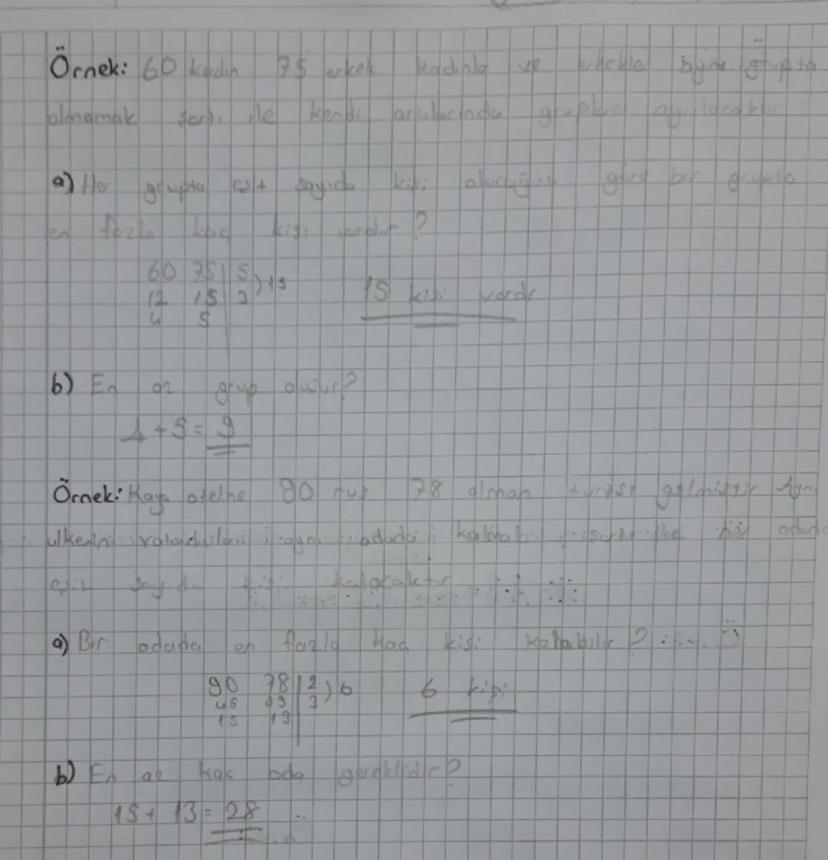 Örnek: 60 kadın 75 erkek kadınla ve erkekle aynı grupta
olmamak şartı ile kendi aralarında gruplara ayrılacaktır
a) Her grupta eşit sayıda kişi olacağına göre bir grupta
en fazla kaç kişi vardır?
60 75 | 5 ) 15 15 kişi vardır
12 15 | 3
4 5
b) En az grup oluşur?
4 + 5 = 9
Örnek: otelne 90 78 alman turist gelmiştir
aynı odada her odada
eşit sayıda kişi kalacaktır
a) Bir odada en fazla kaç kişi kalabilir?
90 78 | 2 ) 6 6 kişi
45 39 | 3
15 13
b) En az kaç oda gereklidir?
15 + 13 = 28